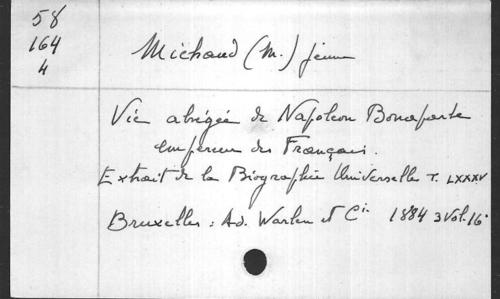 58
164
4
Michaud (M.) jeune
Vie abrégée de Napoléon Bonaparte
empereur des Français.
Extrait de la Biographie Universelle T. LXXXV
Bruxelles : Ad. Warlen et Cie. 1884 3 Vol. 16°